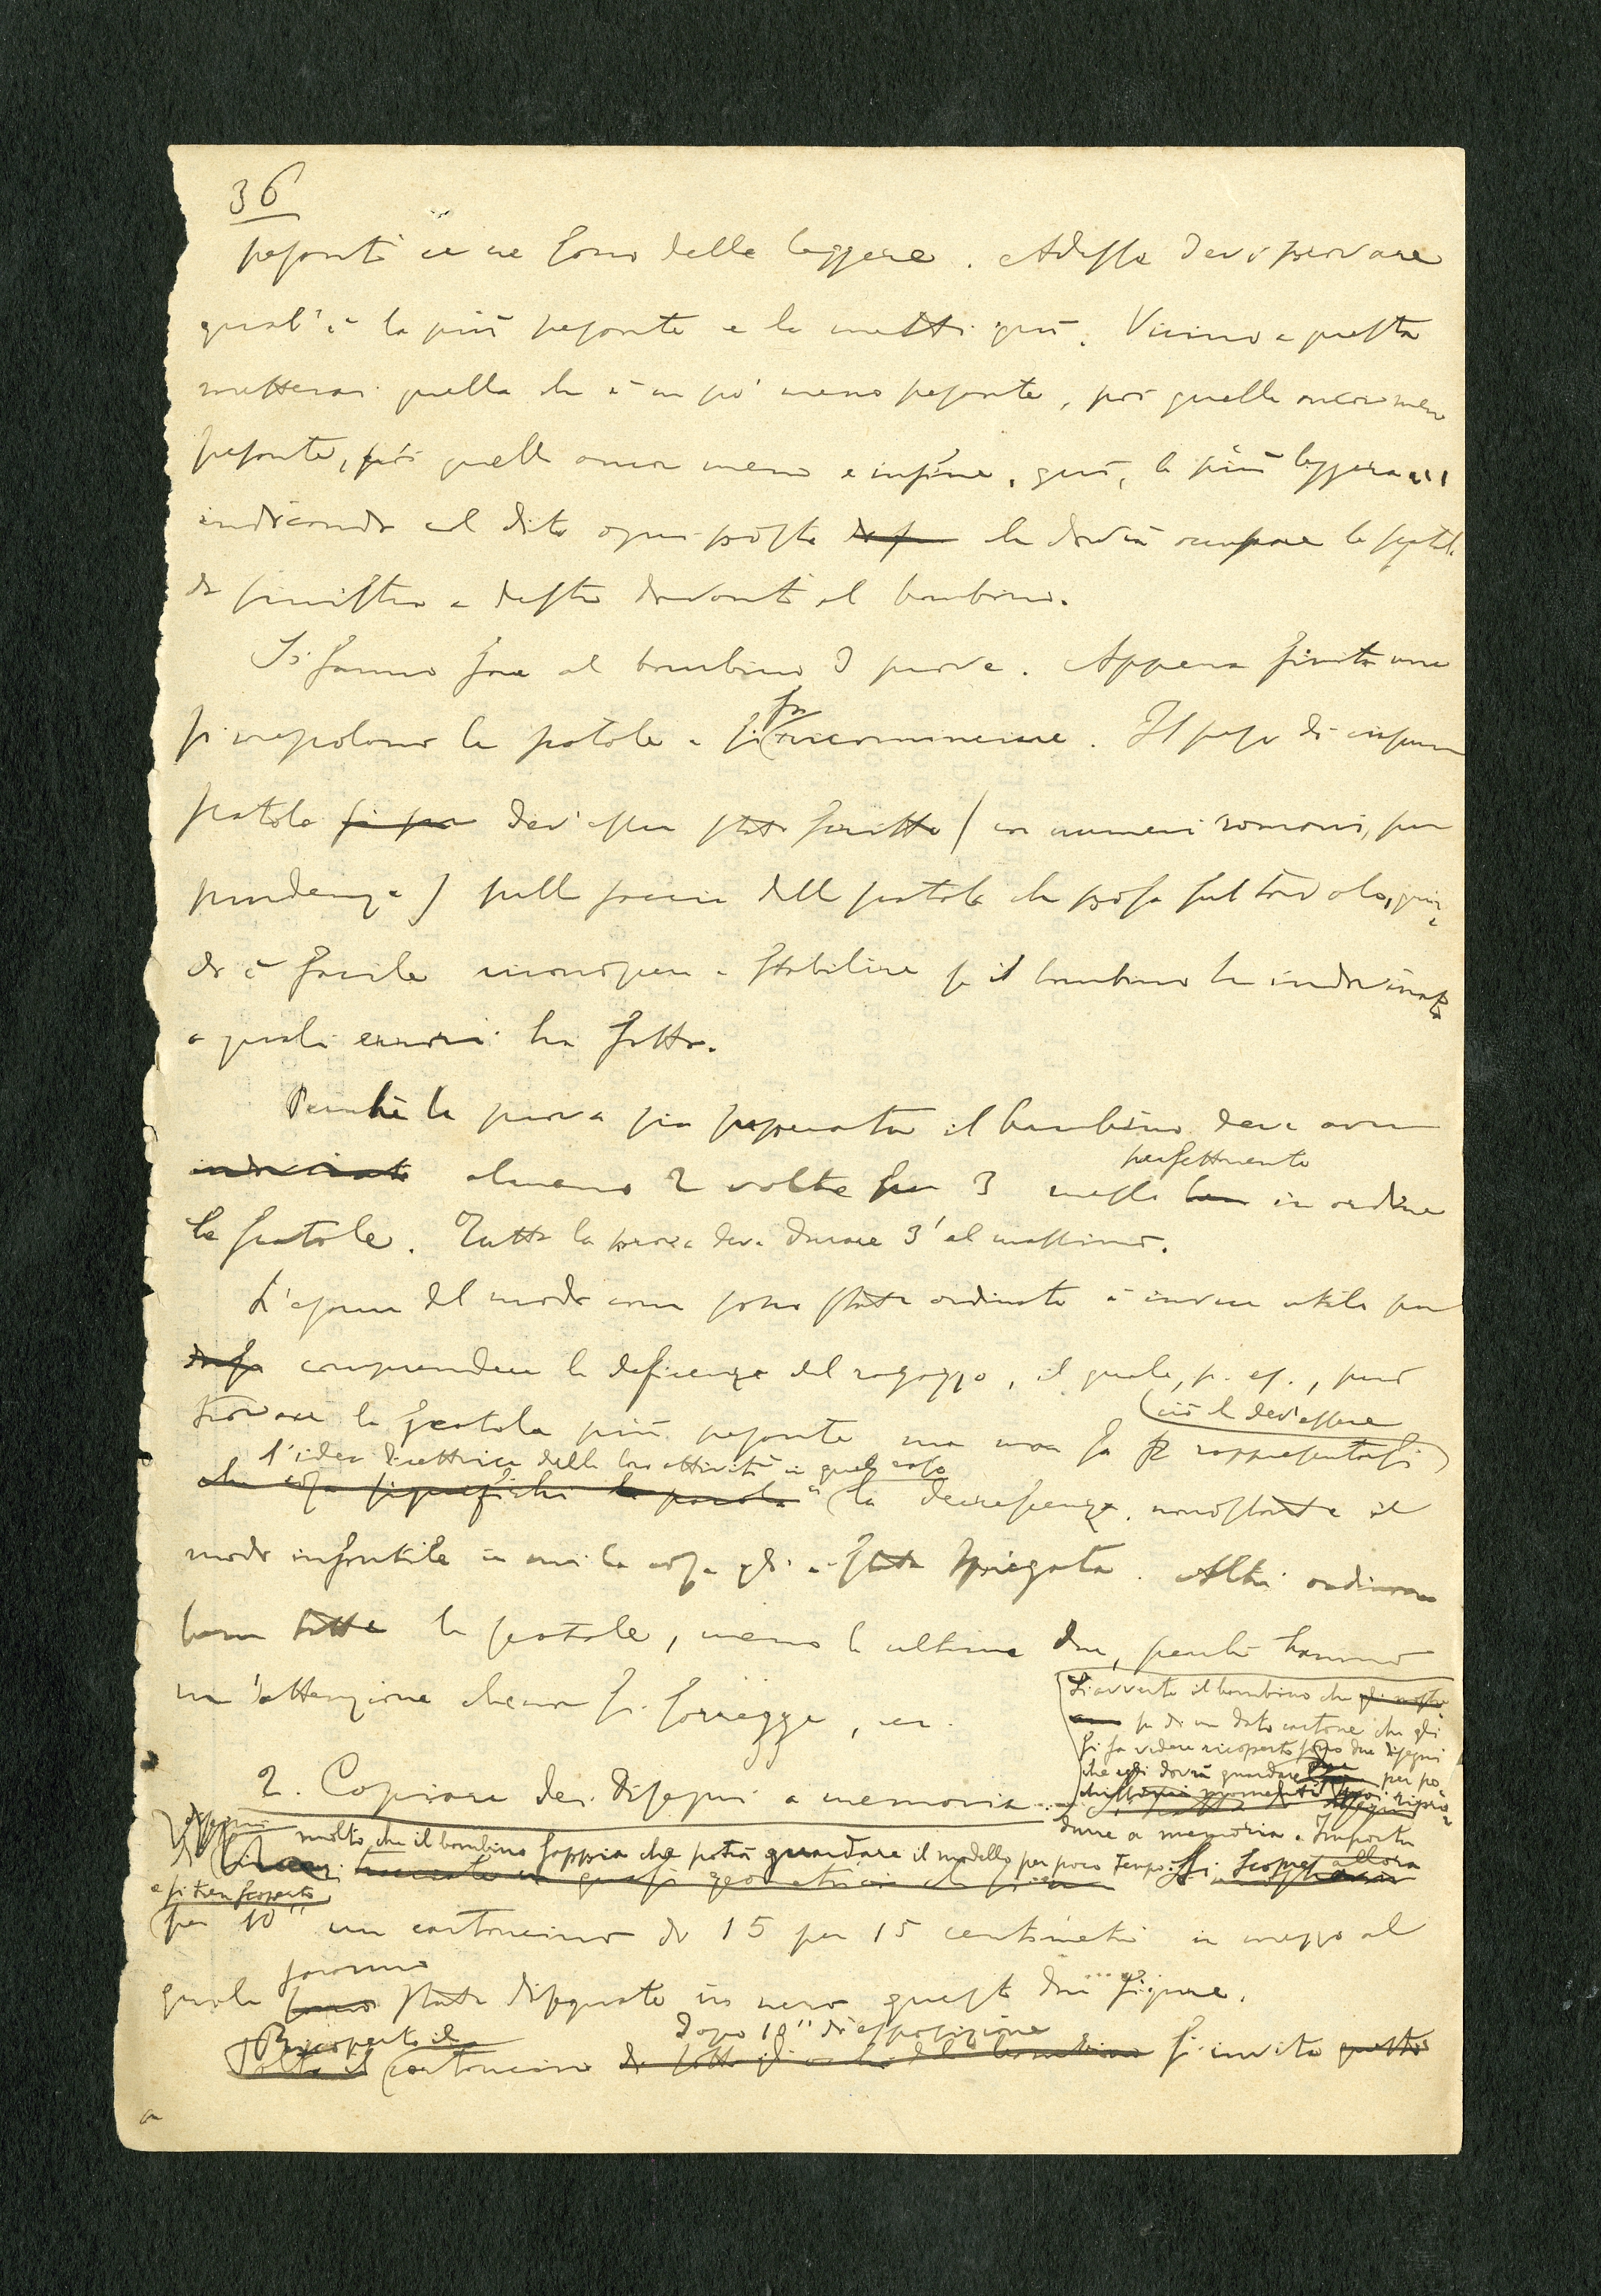 36
pesanti ce ne sono delle leggere. Adesso devi provare
qual'è la più pesante e la metti qui. Vicino a questa
metterai quella che è un po' meno pesante, poi quella ancora meno
pesante, poi quella ancor meno e infine, qui, la più leggera...
indicando col dito ogni posto che dovrà occupare la scatola
da sinistra a destra davanti al bambino.
Si fanno fare al bambino 3 prove. Appena finita una
si mescolano le scatole e si fa ricominciare. Il peso di ciascuna
scatola dev'esser stato scritto (in numeri romani, per
prudenza) sulla faccia della scatola che posa sul tavolo, quin-
di è facile stabilire se il bambino ha indovinato
o quali errori ha fatto.
Perchè la prova sia superata il bambino deve aver
indovinato almeno 2 volte su 3 messo perfettamente in ordine
le scatole. Tutta la prova deve durare 3' al massimo.
L'esame del modo come sono state ordinate è invece utile per
comprendere la deficienza del ragazzo, il quale, p. es., può
trovare la scatola più pesante ma non sa rappresentarsi
(ciò che dev'essere
l'idea direttrice della loro attività in quel caso
che cosa significhi la parola) la decrescenza, nonostante il
modo infantile in cui la cosa gli è stata spiegata. Altri ordinano
bene tutte le scatole, meno le ultime due, perchè hanno
un'attenzione che non si sorregge, ecc.
2. Copiare dei disegni a memoria.
Si avverte il bambino che
su di un dato cartone che gli
si fa vedere ricoperto sono due disegni
che egli dovrà guardare per po-
chi momenti e poi ripro-
durre a memoria. Importa
molto che il bambino sappia che potrà guardare il modello per poco tempo. Si scopre allora
e si tien scoperto
per 10" un cartoncino di 15 per 15 centimetri in mezzo al
quale saranno state disegnate in nero queste due figure.
Ricoperto il cartoncino dopo 10" di esposizione si invita questo
a